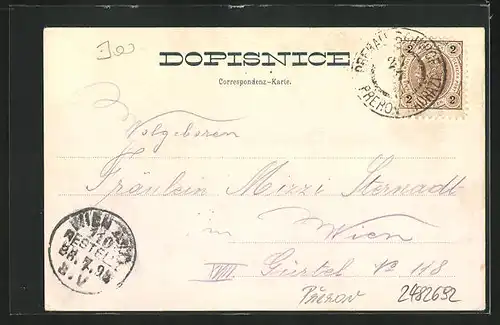 DOPISNICE
Correspondenz-Karte.
PRERAU
PŘEROV
2 2
2 2
Wolgeboren
Fräulein Mizzi Sternadt
in
Wien
VIII. Gürtel № 118
WIEN
BESTELLT
8.V
Přerov 2482692